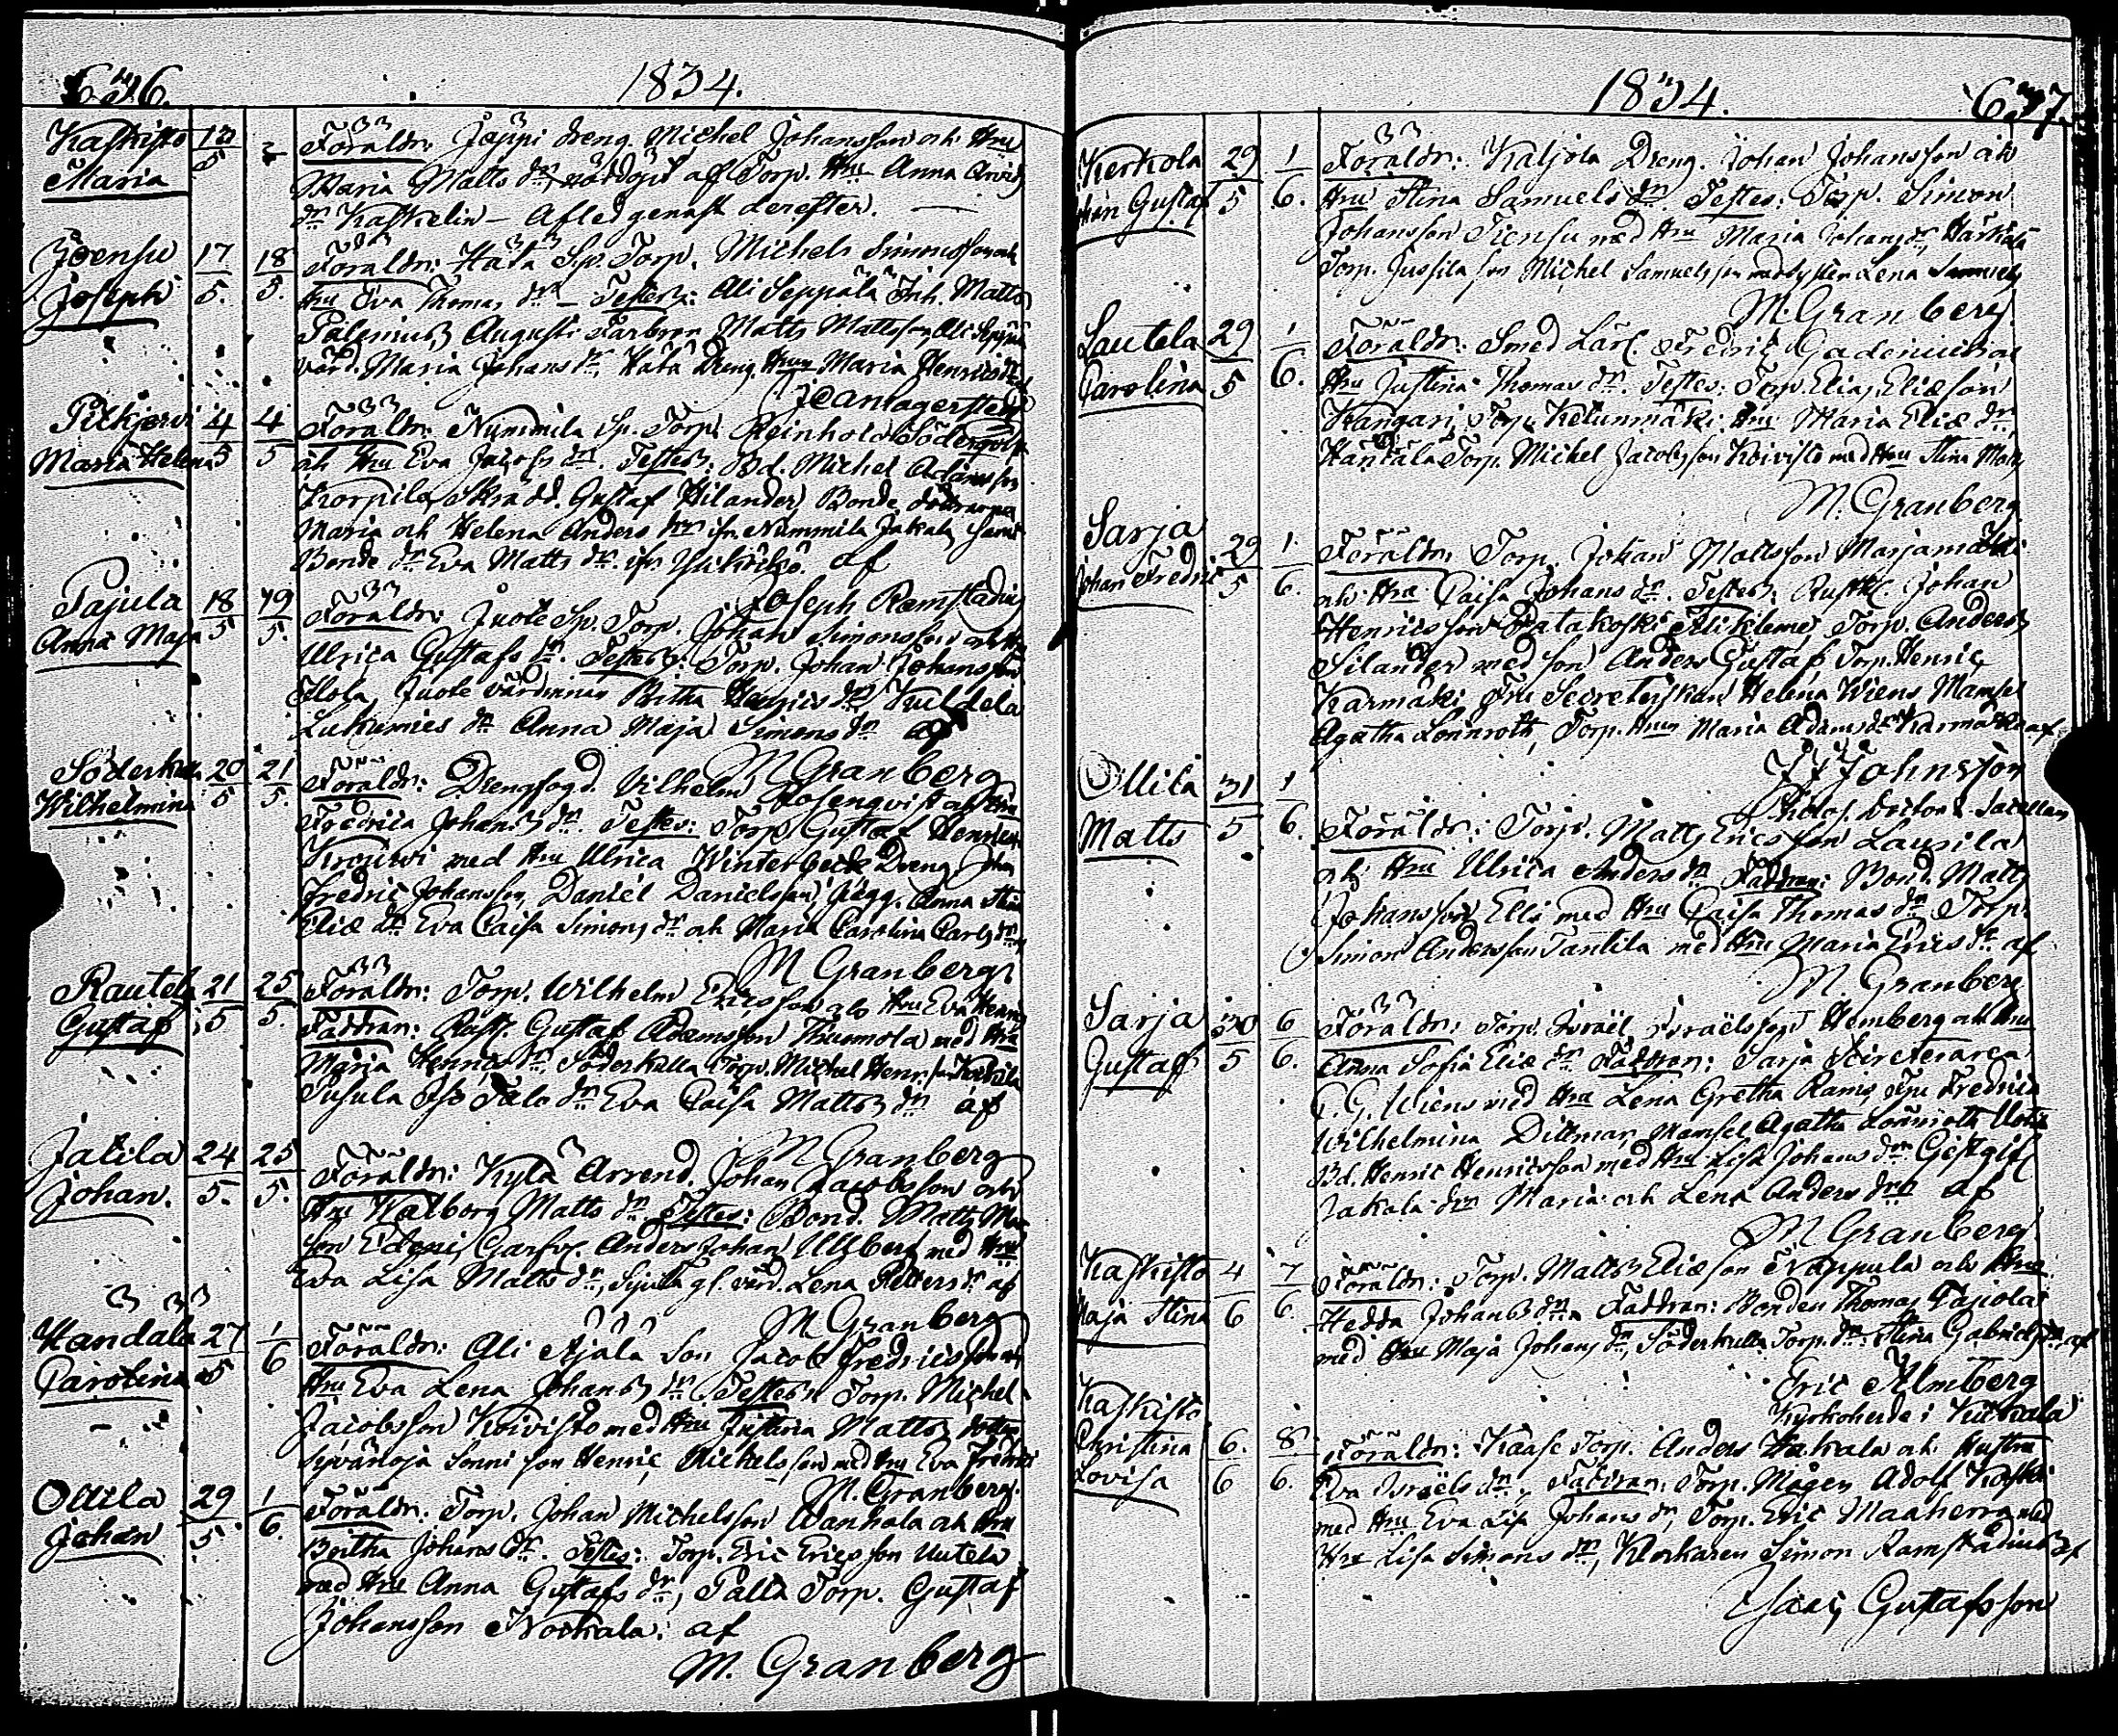 636.
1834.
Kaskisto 13
5
Maria
Föräldr: Jäppi dreng Michel Johansson och Hru
Maria Matts dr, nöddöpt af Torp. Hru Anna Arvids
dr Kaskelin – Afled genast derefter.
Joensu 17 18
Joseph 5. 5.
Föräldr: Hätä Sp. Torp. Michels Simonsson och
Hru Eva Thomas dr – Testes: Ali Seppälä Inh. Matts
Palenius, Augusti Farbror Matts Mattsson, Ali Seppä
värd. Maria Johans dr, Hätä Dreng. Hrun Maria Henrics dr
Jean Lagerstedt
Pitkjervi 4 4
Maria Helena 5 5
Föräldr: Nummila Sp. Torp. Reinhold Söderqvist
och Hru Eva Jacobs dr. Testes: Bd. Michel Adamsson
Korpila, Gustaf Hilander, Bonde döttrarna
Maria och Helena Anders drr ifr. Nummila Jakala, samt
Bonde dr Eva Matts dr ifr. af
Joseph Ramstadius
Pajula 18 19
Anna Maja 5 5.
Föräldr: Juote Sp. Torp. Johan Simonsson och Hru
Ulrica Gustafs dr. Testes: Torp. Johan Johansson
Ilola, Juote värdinnan Britha Henrics dr
Lukumies dr Anna Maja Simons dr af
M Granberg
Söderkulla 20 21
Wilhelmina 5 5.
Föräldr: Drengfogd. Wilhelm Rosenqvist och Hru
Fredrica Johans dr. Testes: Torp. Gustaf Henricss
Krouvi med Hru Ulrica Winterbeck Dreng. Johan
Fredric Johansson, Daniel Danielsson, Pigg. Anna Stina
Eliæ dr Eva Caisa Simons dr och Maria Carolina Carls dr
M Granberg
Rautela 21 25
Gustaf 5 5.
Föräldr: Torp. Wilhelm Ericsson och Hru Eva Henrics
Faddran: Rustf. Gustaf Adamsson Thummola med Hru
Maria Henrics dr, Söderkulla Torp. Michel Henr. son
Pusula Iso Talo dr Eva Caisa Matts dr af
M Granberg
Jatila 24 25
Johan. 5. 5.
Föräldr: Kylä Arrend. Johan Jacobsson och
Hru Walborg Matts dr Testes: Bond. Matts Mat
son Garfv. Anders Johan Ullberg med Hru
Eva Lisa Matts dr, gl. värd. Lena Petters dr af
M Granberg
Händälä 27 1
Carolina 5 6
Föräldr: Ali Äjälä son Jacob Fredricsson och
Hru Eva Lena Johans dr Testes: Torp. Michel
Jacobsson Koivisto med Hru Justina Matts dotter
Syvänoja Sonni son Henric Michelsson med Hru Eva Fredrics
M. Granberg.
Ollila 29 1
Johan 5. 6.
Föräldr: Torp. Johan Michelsson Wanhala och Hru
Britha Johans dr. Testes: Torp. Eric Ericsson Uutela
med Hru Anna Gustafs dr, Palla Torp. Gustaf
Johansson Nokkala. af
M. Granberg
1834.
637.
Kerkola 29 1
Johan Gustaf 5 6.
Föräldr: Kaljola Dreng. Johan Johansson och
Hru Stina Samuels dr. Testes: Torp. Simon
Johansson Tiensu med Hru Maria Johans dr, Härkälä
Torp. Jussila son Michel Samuelsson med syster Lena Samuels
M. Granberg.
Lautela 29 1
Carolina 5 6.
Föräldr: Smed Lärl. Fredric Gadenius och
Hru Justina Thomas dr. Testes: Torp. Elias Eliæson
Kangari, Torp. Ketunmäki Hru Maria Eliæ dr,
Händälä Torp. Michel Jacobsson Koivisto med Hru Stina Matts
M. Granberg.
Sarja 29 1
Johan Fredric 5 6.
Föräldr: Torp. Johan Mattsson Marjamäki
och Hru Caisa Johans dr. Testes: Rustf. Johan
Henricsson Patakoski Torp. Anders
Silander med son Anders Gustaf Torp. Henric
Karmäki Fru Secreterskan Helena Wiens Mamsel
Agatha Lönnroth, Torp. Hrun Maria Adams dr Karmäki af
J J Johnsson
Philos. Doctor & Sacellan
Ollila 31 1
Matts 5 6.
Föräldr: Torp. Matts Ericsson Lausila
och Hru Ulrica Anders dr Faddran: Bond. Matts
Johansson Elli med Hru Caisa Thomas dr Torp.
Simon Andersson Tantila med Hru Maria Erics dr af
M. Granberg
Sarja 30 6
Gustaf 5 6.
Föräldr: Torp. Israël Israëlsson Hemberg och Hru
Anna Sofia Eliæ dr Faddran: Sarja Secreteraren
C. G. Wiens med Hru Lena Gretha Rams, Fru Fredrica
Wilhelmina Dittmar, Mamsel Agatha Lönnroth
Bd. Henric Henricsson med Hru Lisa Johans dr. Gästgif.
Jakala drr Maria och Lena Anders drr af
M Granberg
Kaskisto 4 7
Maja Stina 6 6.
Föräldr: Torp. Matts Eliæson Nappula och Hru
Hedda Johans dr. Faddran: Bonden Thomas Pajola
med Hru Maja Johans dr, Söderkulla Torp. dr. Stina Gabriels dr. af
Eric Almberg
Kyrkoherde i Kiikala
Kaskisto
Christina 6. 8
Lovisa 6 6.
Föräldr: Torp. Anders Hakala och Hustru
Eva Israëls dr, Faddran: Torp. Mågen Adolf Koski
med Hru Eva Lisa Johans dr, Torp. Eric Maaherra med
Hru Lisa Simons dr, Klockaren Simon Ramstadius af
Isaac Gustafsson